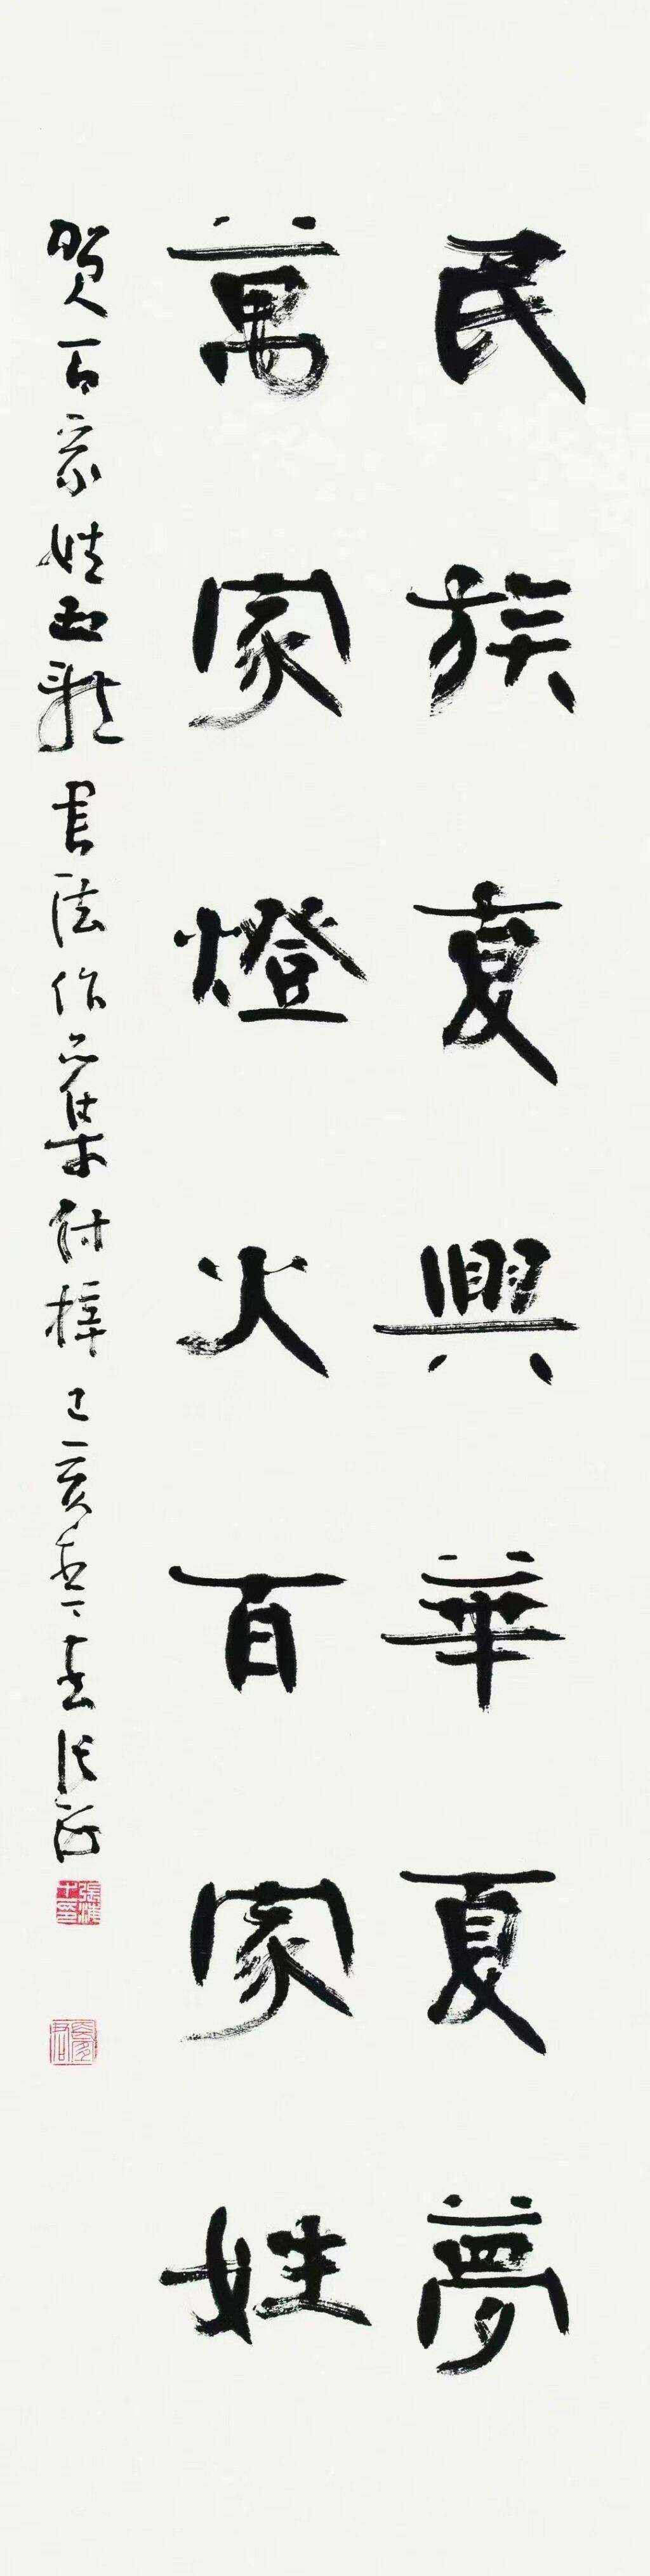 民族复興華夏夢
萬家燈火百家姓
賀百家姓書法作品集付梓己亥春